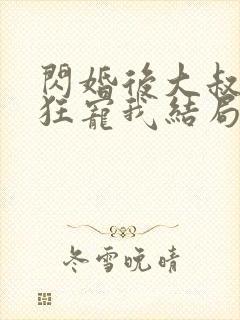 閃婚後大叔
狂寵我結局
冬雪晚晴